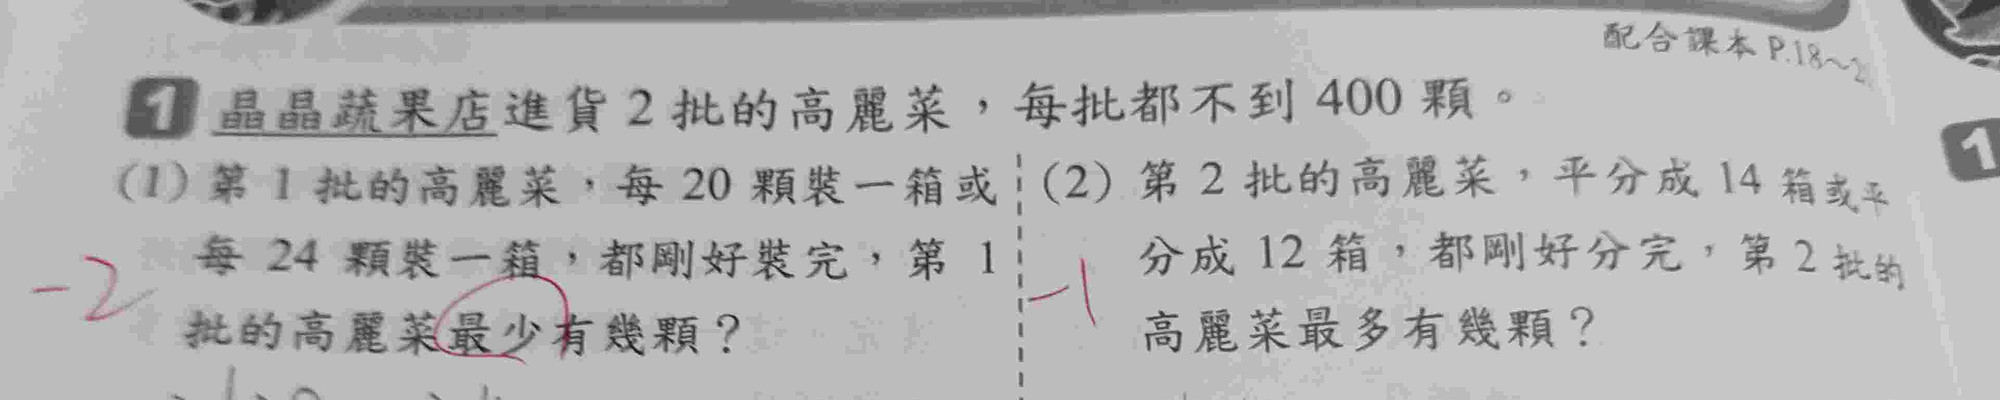 配合課本 P.18~2
1 晶晶蔬果店進貨 2 批的高麗菜，每批都不到 400 顆。
1
(1) 第 1 批的高麗菜，每 20 顆裝一箱或
每 24 顆裝一箱，都剛好裝完，第 1
批的高麗菜最少有幾顆？
-2
(2) 第 2 批的高麗菜，平分成 14 箱或平
分成 12 箱，都剛好分完，第 2 批的
高麗菜最多有幾顆？
-1